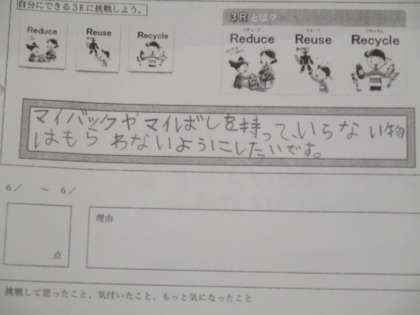 自分にできる3Rに挑戦しよう。
3Rとは?
Reduce Reuse Recycle
Reduce Reuse Recycle
マイバックやマイはばしを持って、いらない物
はもらわないようにしたいです。
6/ ～ 6/
理由
点
挑戦して思ったこと、気付いたこと、もっと気になったこと